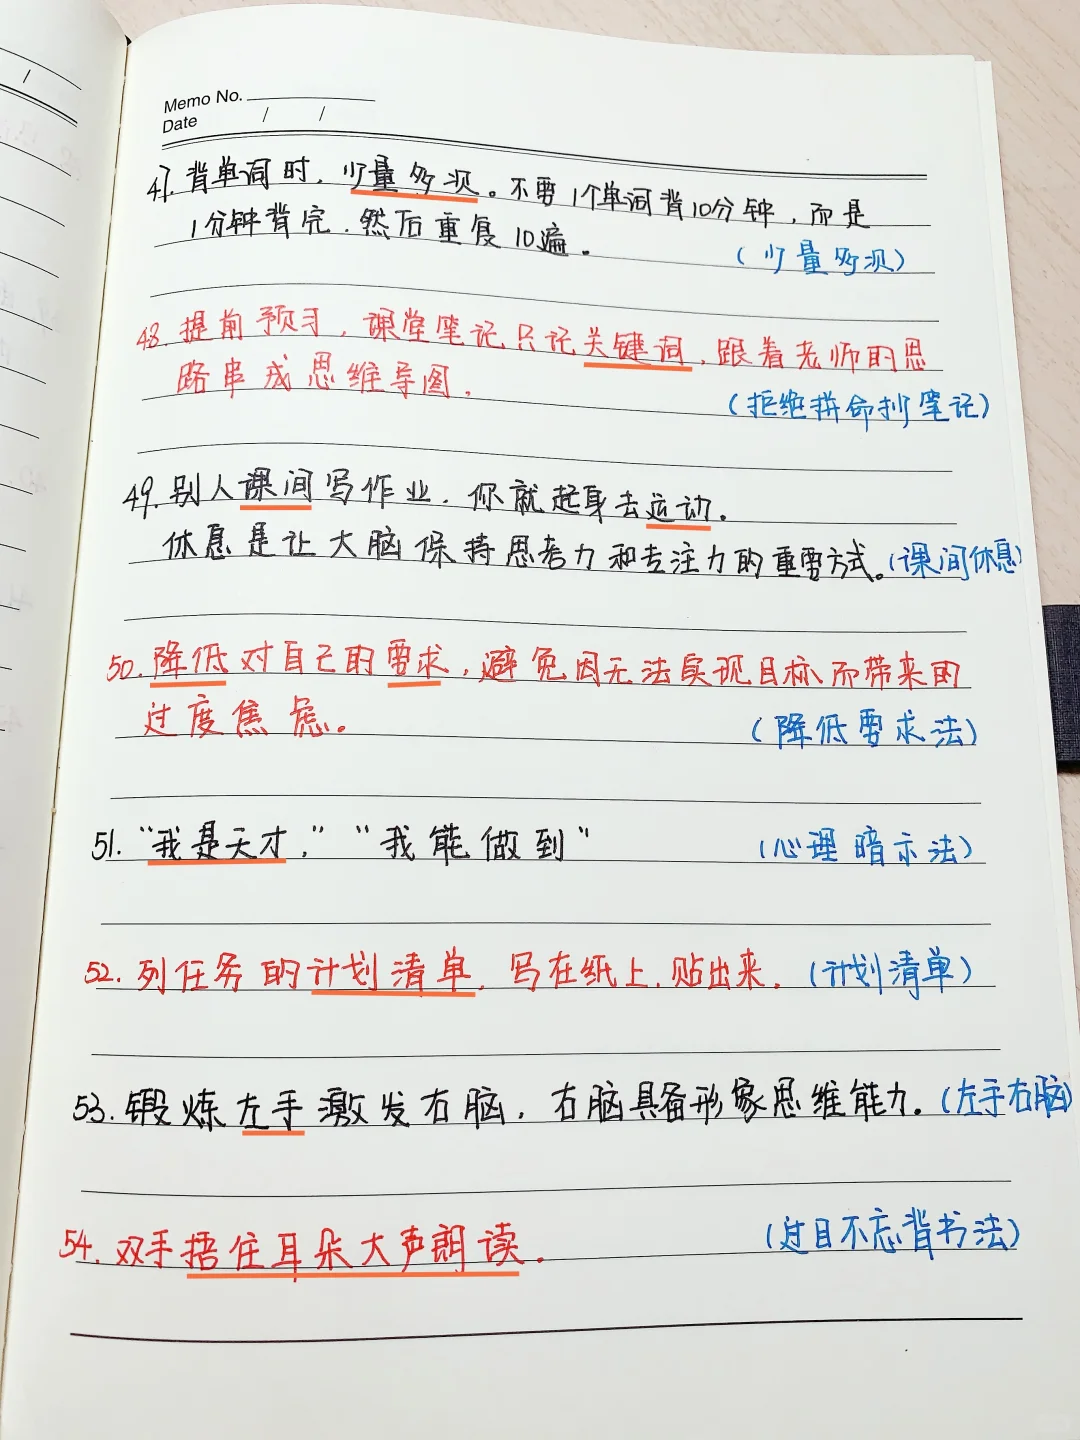 Memo No.
Date / /
47. 背单词时，少量多次。不要1个单词背10分钟，而是
1分钟背完，然后重复10遍。
（少量多次）
48. 提前预习，课堂笔记只记关键词，跟着老师的思
路串成思维导图。
（拒绝拼命抄笔记）
49. 别人课间写作业，你就起身去运动。
休息是让大脑保持思考力和专注力的重要方式。（课间休息）
50. 降低对自己的要求，避免因无法实现目标而带来的
过度焦虑。
（降低要求法）
51. “我是天才，”“我能做到” （心理暗示法）
52. 列任务的计划清单，写在纸上，贴出来。（计划清单）
53. 锻炼左手激发右脑，右脑具备形象思维能力。（左手右脑）
54. 双手捂住耳朵大声朗读。 （过目不忘背书法）